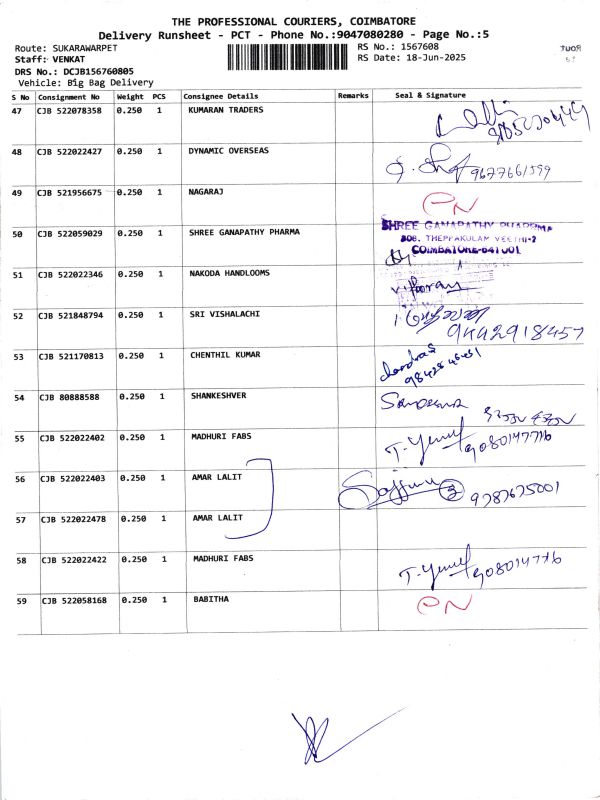 THE PROFESSIONAL COURIERS, COIMBATORE
Delivery Runsheet - PCT - Phone No.:9047080280 - Page No.:5
Route: SUKARAWARPET
RS No.: 1567608
Staff: VENKAT
RS Date: 18-Jun-2025
DRS No.: DCJB156760805
Vehicle: Big Bag Delivery
S No Consignment No Weight PCS Consignee Details Remarks Seal & Signature
47 CJB 522078358 0.250 1 KUMARAN TRADERS
48 CJB 522022427 0.250 1 DYNAMIC OVERSEAS 9677661599
49 CJB 521956675 0.250 1 NAGARAJ PN
50 CJB 522059029 0.250 1 SHREE GANAPATHY PHARMA
SHREE GANAPATHY PHARMA
308, THEPPAKULAM VEETHI-2
COIMBATORE-641001
51 CJB 522022346 0.250 1 NAKODA HANDLOOMS
52 CJB 521848794 0.250 1 SRI VISHALACHI
9442918457
53 CJB 521170813 0.250 1 CHENTHIL KUMAR
54 CJB 80888588 0.250 1 SHANKESHVER
55 CJB 522022402 0.250 1 MADHURI FABS 9080147716
56 CJB 522022403 0.250 1 AMAR LALIT 9787675001
57 CJB 522022478 0.250 1 AMAR LALIT
58 CJB 522022422 0.250 1 MADHURI FABS 9080147716
59 CJB 522058168 0.250 1 BABITHA PN